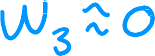 W₃ ≈ 0